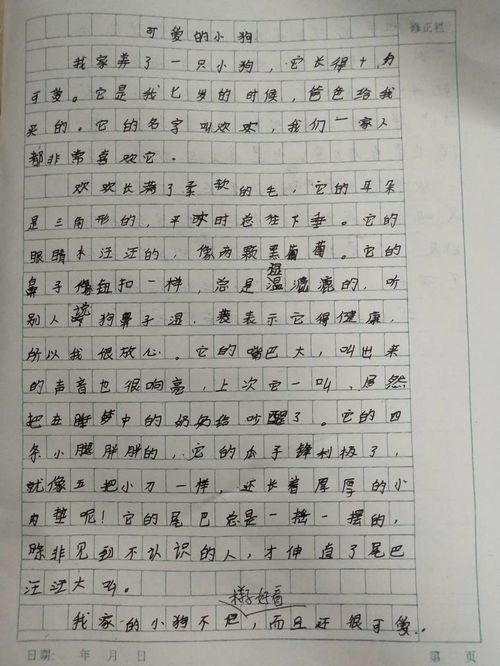 修正栏
可爱的小狗
我家养了一只小狗，它长得十分
可爱。它是我七岁的时候，爸爸给我
买的。它的名字叫欢欢，我们一家人
都非常喜欢它。
欢欢长满了柔软的毛，它的耳朵
是三角形的，平时总往下垂。它的
眼睛水汪汪的，像两颗黑葡萄。它的
鼻子像钮扣一样，总是湿漉漉的，听
别人说狗鼻子湿，表示它得健康，
所以我很放心。它的嘴巴大，叫出来
的声音也很响亮，上次它一叫，居然
把在睡梦中的奶奶给吵醒了。它的四
条小腿胖胖的，它的爪子锋利极了，
就像五把小刀一样，还长着厚厚的小
肉垫呢！它的尾巴总是一摇一摆的，
除非见到不认识的人，才伸直了尾巴
汪汪大叫。
我家的小狗不但样子好看，而且还很可爱。
日期： 年 月 日
第 页